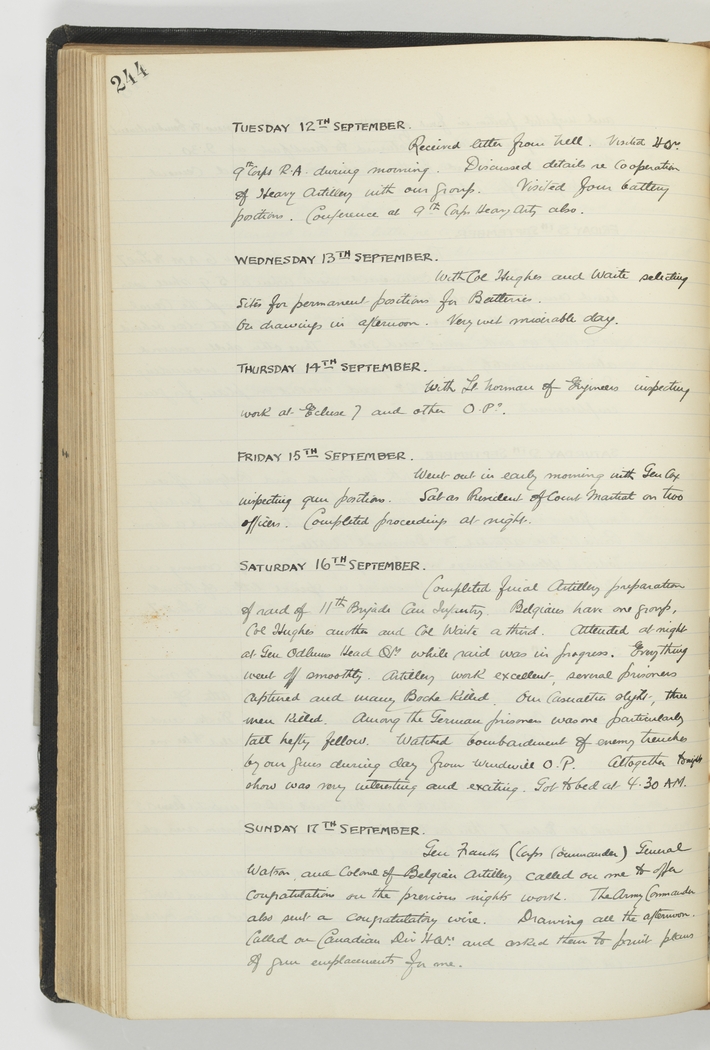 244
TUESDAY 12TH SEPTEMBER.
Received letter from Nell. Visited HQrs
9th Corps R.A. during morning. Discussed details re Cooperation
of Heavy Artillery with our group. Visited four battery
positions. Conference at 9th Corps Heavy Arty also.
WEDNESDAY 13TH SEPTEMBER.
With Col Hughes and Waite selecting
sites for permanent positions for Batteries.
On drawings in afternoon. Very wet miserable day.
THURSDAY 14TH SEPTEMBER.
With Lt Norman of Engineers inspecting
work at Ecluse 7 and other O.Ps.
FRIDAY 15TH SEPTEMBER.
Went out in early morning with Gen Cox
inspecting gun positions. Sat as President of Court Martial on two
officers. Completed proceedings at night.
SATURDAY 16TH SEPTEMBER.
Completed final Artillery preparation
of raid of 11th Brigade Can Infantry. Belgians have one group,
Col Hughes another and Col Waite a third. Attended at night
at Gen Odlums Head Qrs while raid was in progress. Everything
went off smoothly. Artillery work excellent, several prisoners
captured and many Boche killed. Our Casualties slight, three
men killed. Among the German prisoners was one particularly
tall hefty fellow. Watched bombardment of enemy trenches
by our guns during day from Windmill O.P. Altogether tonight
show was very interesting and exciting. Got to bed at 4.30 AM.
SUNDAY 17TH SEPTEMBER.
Gen Franks (Corps Commander) General
Watson, and Colonel of Belgian Artillery called on me to offer
congratulations on the previous nights work. The Army Commander
also sent a congratulatory wire. Drawing all the afternoon.
Called on Canadian Div HQrs. and asked them to print plans
of gun emplacements for me.